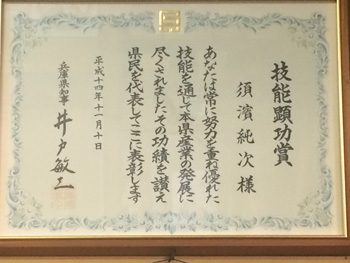 技能顕功賞
須濱純次様
あなたは常に努力を重ね優れた
技能を通して本県産業の発展に
尽くされましたその功績を讃え
県民を代表してここに表彰します
平成十四年十一月十日
兵庫県知事 井戸敏三